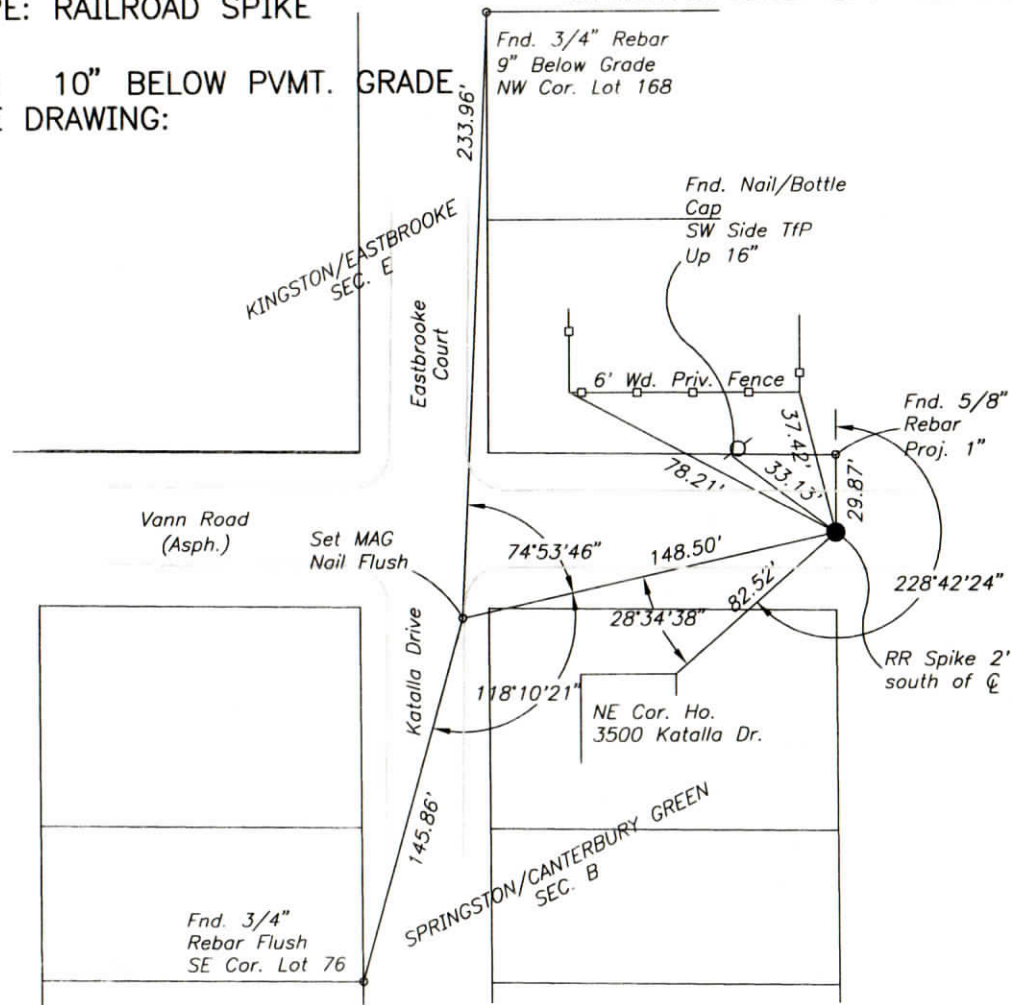 PE: RAILROAD SPIKE
10" BELOW PVMT. GRADE
E DRAWING:
Fnd. 3/4" Rebar
9" Below Grade
NW Cor. Lot 168
233.96'
Fnd. Nail/Bottle
Cap
SW Side TfP
Up 16"
KINGSTON/EASTBROOKE
SEC. E
Eastbrooke
Court
6' Wd. Priv. Fence
Fnd. 5/8"
Rebar
Proj. 1"
37.42'
78.21'
33.13'
29.87'
Vann Road
(Asph.)
Set MAG
Nail Flush
74°53'46"
148.50'
228°42'24"
82.52'
28°34'38"
RR Spike 2'
south of ℄
Katalla Drive
118°10'21"
NE Cor. Ho.
3500 Katalla Dr.
145.86'
SPRINGSTON/CANTERBURY GREEN
SEC. B
Fnd. 3/4"
Rebar Flush
SE Cor. Lot 76